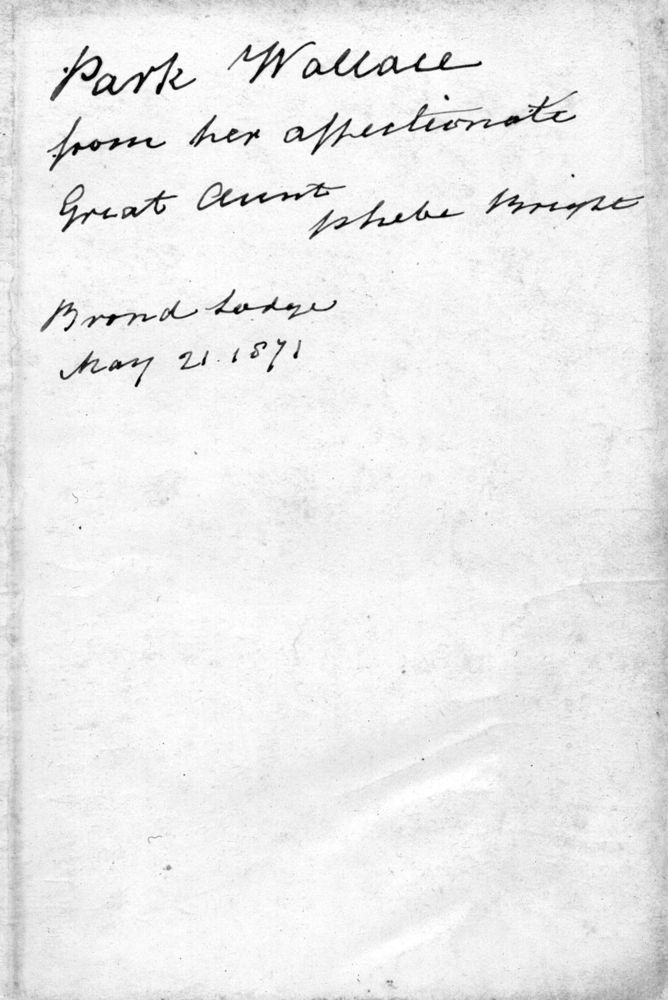 Park Wallace
from her affectionate
Great Aunt
Phebe Bright
Brond Lodge
May 21. 1871